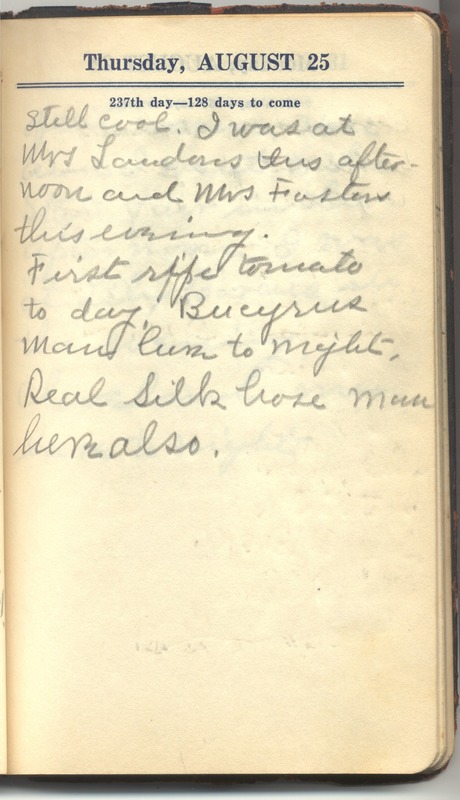 Thursday, AUGUST 25
237th day—128 days to come
Still cool. I was at
Mrs Landons this after-
noon and Mrs Fosters
this evening.
First ripe tomato
to day. Bucyrus
man here to night.
Real Silk hose man
here also.